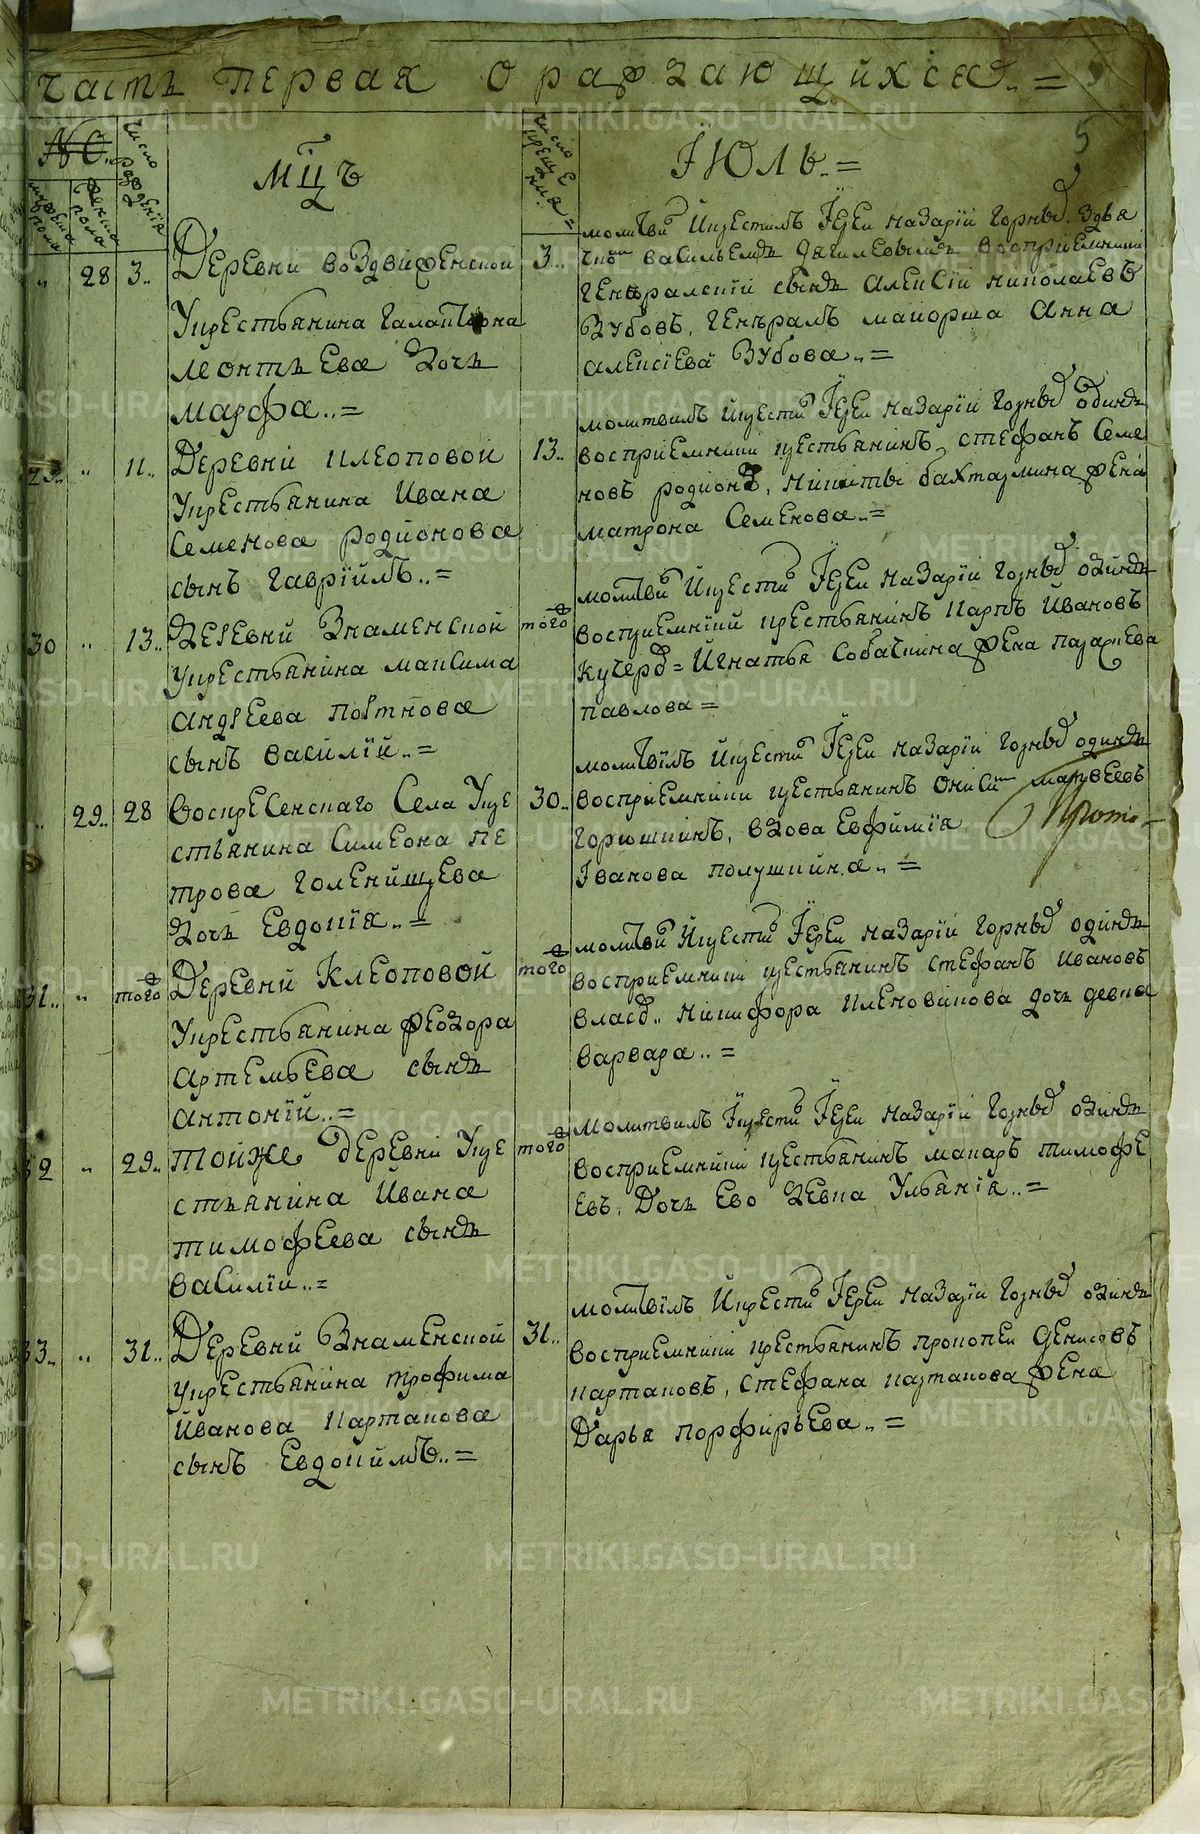 часть первая о раждающихся.. =
5
№
число рожденія
мужеска пола
женска пола
мц҃ъ
число крещенія =
Їюль. =
28 3..
Деревни воздвиженской
Укрестьянина
леонтьева дочь
марфа.. =
3..
молитвилъ Икрестилъ Їерей Назарїй Горныхъ здья
василъемъ воспрїемники
генералскїй сынъ алексїй николаевъ
Зубовъ, генералъ маиорша анна
алексїева Зубова.. =
29.. „ 11..
Деревни клеоповой
Укрестьянина Ивана
Семенова родионова
сынъ гаврїилъ.. =
13..
молитвилъ Икрестилъ Їерей Назарїй Горныхъ одинъ
воспрїемники крестьянинъ, стефанъ Семе
новъ родионовъ, никиты бахтармина жена
матрона Семенова.. =
30 „ 13..
Деревни Знаменской
укрестьянина максима
андреева
сынъ василїй.. =
того ж
молитвилъ Икрестилъ Їерей Назарїй Горныхъ одинъ
воспрїемникїи крестьянинъ карпъ Ивановъ
Кучеровъ = Игнатья Собакина жена
павлова =
„ 29.. 28
Воскресенскаго Села Укре
стьянина Симеона пе
трова голенищева
дочь Евдокїя.. =
30..
молитвилъ Икрестилъ Їерей Назарїй Горныхъ одинъ
воспрїемники крестьянинъ матвеевъ
Горюшкинъ, вдова Евфимїя
Їванова полушкина.. =
Прото-
31.. „ того ж
Деревни Клеоповой
Укрестьянина феодора
артемьева сынъ
антонїй.. =
того ж
молитвилъ Икрестилъ Їерей Назарїй Горныхъ одинъ
воспрїемники крестьянинъ стефанъ Ивановъ
никифора дочь девка
варвара.. =
32 „ 29..
тойже деревни Укре
стьянина Ивана
тимофеева сынъ
василїи.. =
того ж
молитвилъ Їкрестилъ Їерей Назарїй Горныхъ одинъ
воспрїемники крестьянинъ макаръ тимофе
евъ. Дочь Ево девка Ульянїя.. =
33.. „ 31..
Деревни Знаменской
укрестьянина трофима
Иванова картапова
сынъ Евдокимъ.. =
31..
молитвилъ Икрестилъ Їерей Назарїй Горныхъ одинъ
воспрїемники крестьянинъ прокопеи денисовъ
картаповъ, стефана картапова жена
Дарья порфирьева.. =